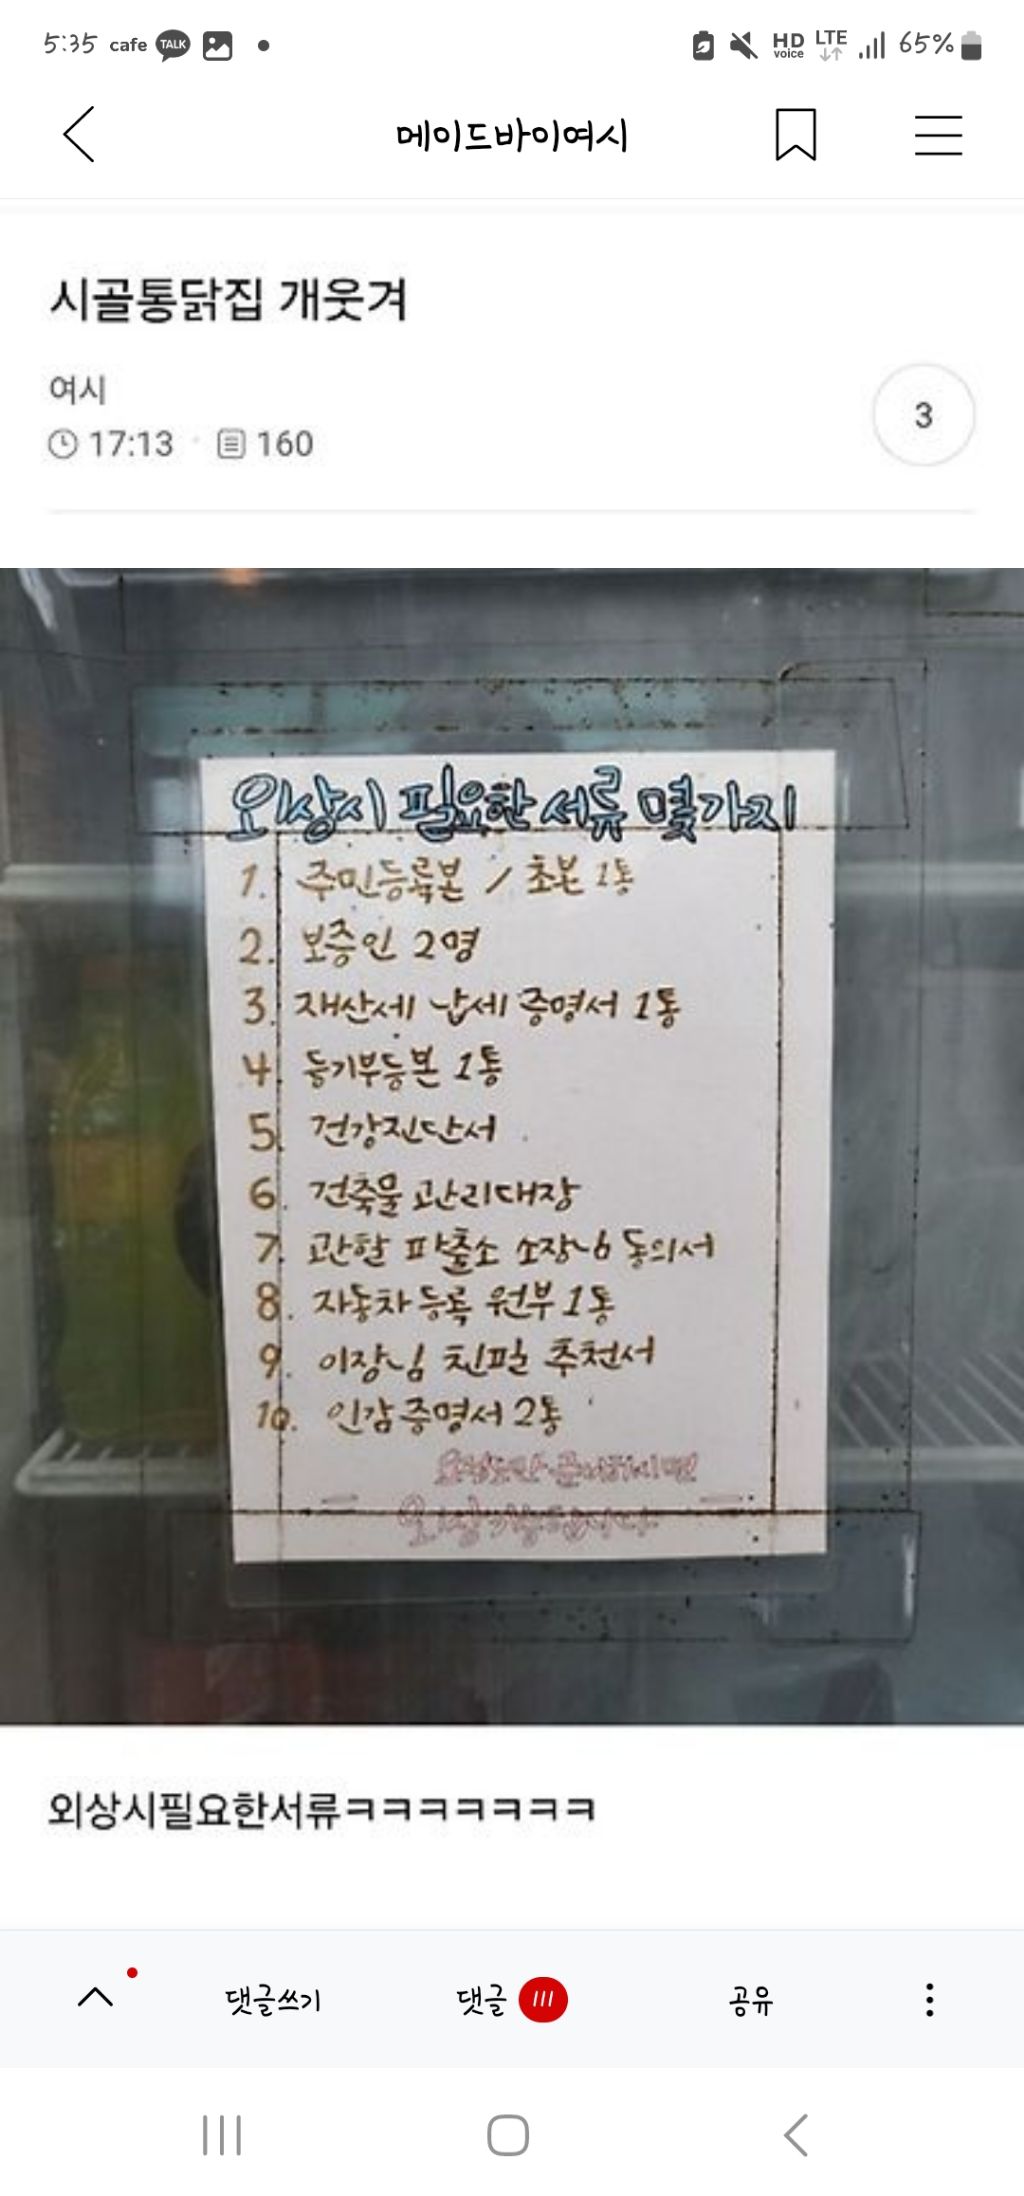 5:35 cafe TALK HD voice LTE 65%
메이드바이여시
시골통닭집 개웃겨
여시
17:13 160
3
외상시 필요한 서류 몇가지
1. 주민등록본 / 초본 1통
2. 보증인 2명
3. 재산세 납세 증명서 1통
4. 등기부등본 1통
5. 건강진단서
6. 건축물 관리대장
7. 관할 파출소 소장님 동의서
8. 자동차등록 원부 1통
9. 이장님 친필 추천서
10. 인감증명서 2통
외상시필요한서류ㅋㅋㅋㅋㅋㅋㅋ
댓글쓰기 댓글 111 공유